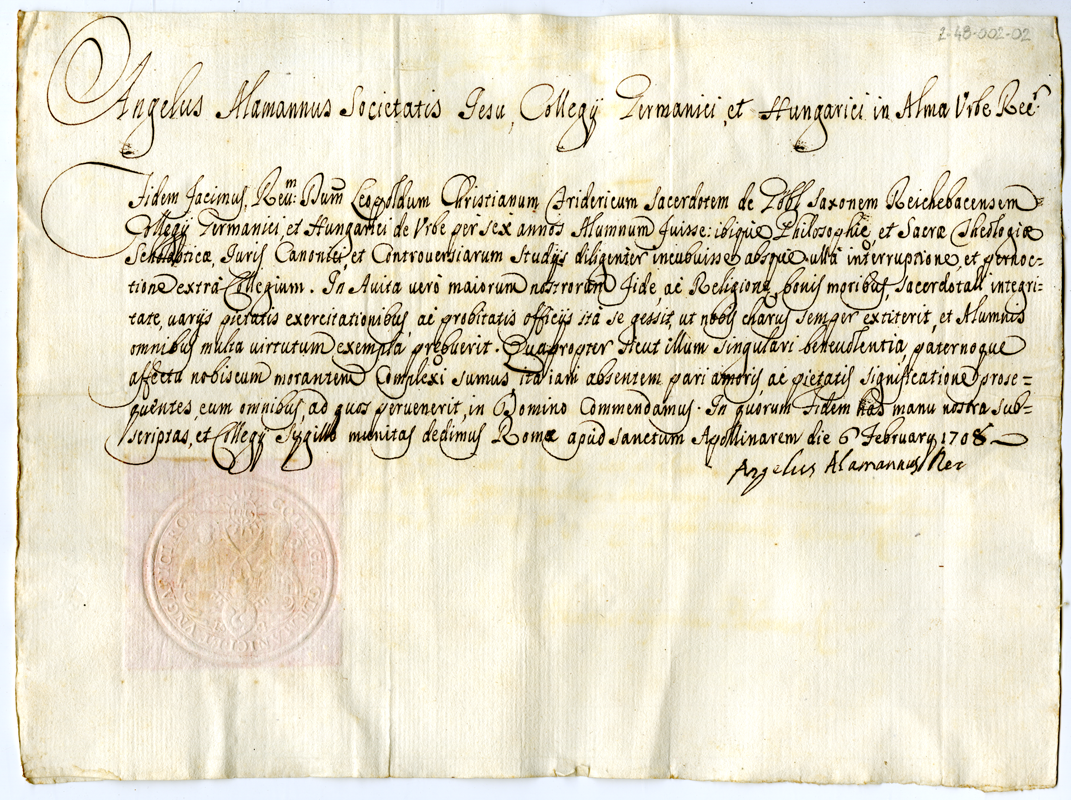 2-48-002-02
Angelus Alamannus Societatis Jesu, Collegij Germanici, et Hungarici in Alma Vrbe Recr
Fidem facimus, Reum: Dum Leopoldum Christianum Fridericum Sacerdotem de Saxonem Reichebacensem
Collegij Germanici, et Hungarici de Vrbe per sex annos Alumnum fuisse: ibique Philosophiæ, et Sacræ Theologiæ
Scholasticæ, Juris Canonici, et Controversiarum Studijs diligenter incubuisse absque ulla interruptione, et pernoc=
tione extrà Collegium. In Avita verò maiorum nostrorum fide, ac Religione, bonis moribus, Sacerdotali integri=
tate, varijs pietatis exercitationibus, ac probitatis officijs ità se gessit, ut nobis charus semper extiterit, et Alumnis
omnibus multa virtutum exempla prebuerit. Quapropter sicut illum singulari benevolentia, paternoque
affectu nobiscum morantem Complexi sumus, ita iam absentem pari amoris, ac pietatis significatione prose=
quentes eum omnibus, ad quos pervenerit, in Domino Commendamus. In quorum Fidem has manu nostra sub=
scriptas, et Collegij Sygillo munitas dedimus Romæ apud Sanctum Apollinarem die 6 February 1708
Angelus Alamannus Rec
COLLEG GERMANICI ET VNGARICI